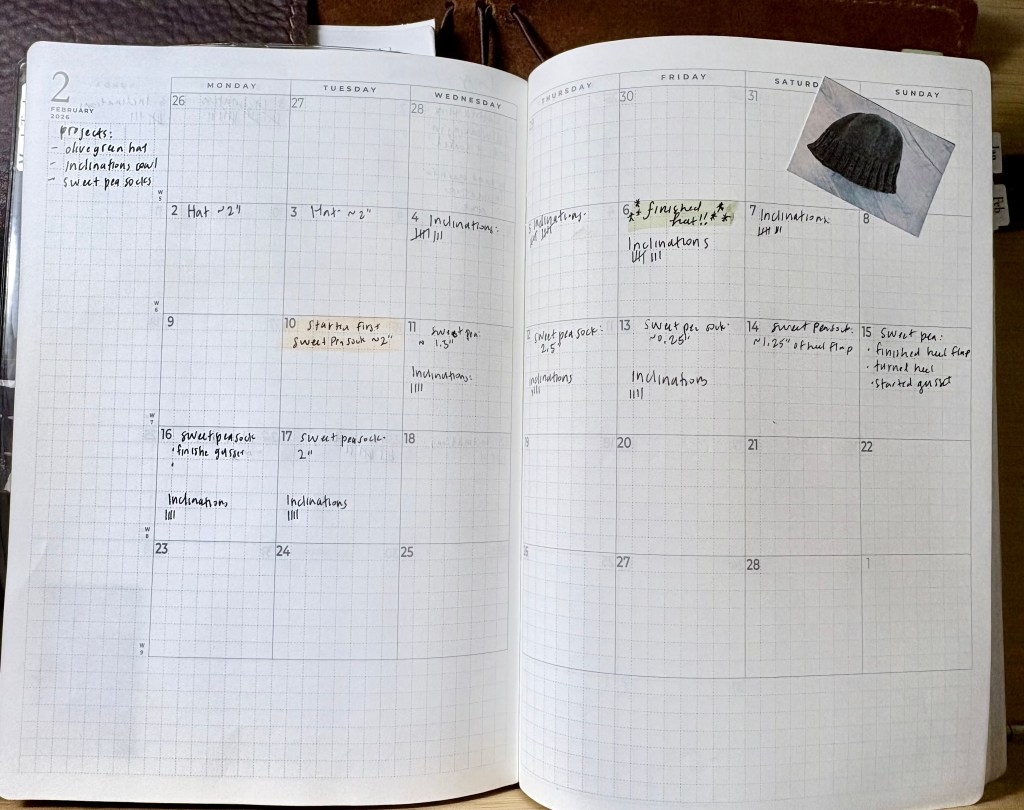 2
FEBRUARY
2026
projects:
- olive green hat
- Inclinations cowl
- sweet pea socks
MONDAY
TUESDAY
WEDNESDAY
THURSDAY
FRIDAY
SATURD
SUNDAY
26
27
28
30
31
W
5
2 Hat ~2"
3 Hat ~2"
4 Inclinations:
5 Inclinations:
6 finished
hat!!
Inclinations
7 Inclinations:
8
W
6
9
10 Started first
Sweet Pea sock ~2"
11 sweet pea:
~ 1.5"
Inclinations:
2 sweet pea sock:
2.5"
Inclinations
13 sweet pea sock:
~0.25"
Inclinations
14 sweet pea sock:
~1.25" of heel flap
15 sweet pea:
• finished heel flap
• turned heel
• started gusset
W
7
16 sweet pea sock
• finishe gusset
•
Inclinations
17 sweet pea sock:
2"
Inclinations
18
9
20
21
22
W
8
23
24
25
26
27
28
1
W
9
Jan
Feb